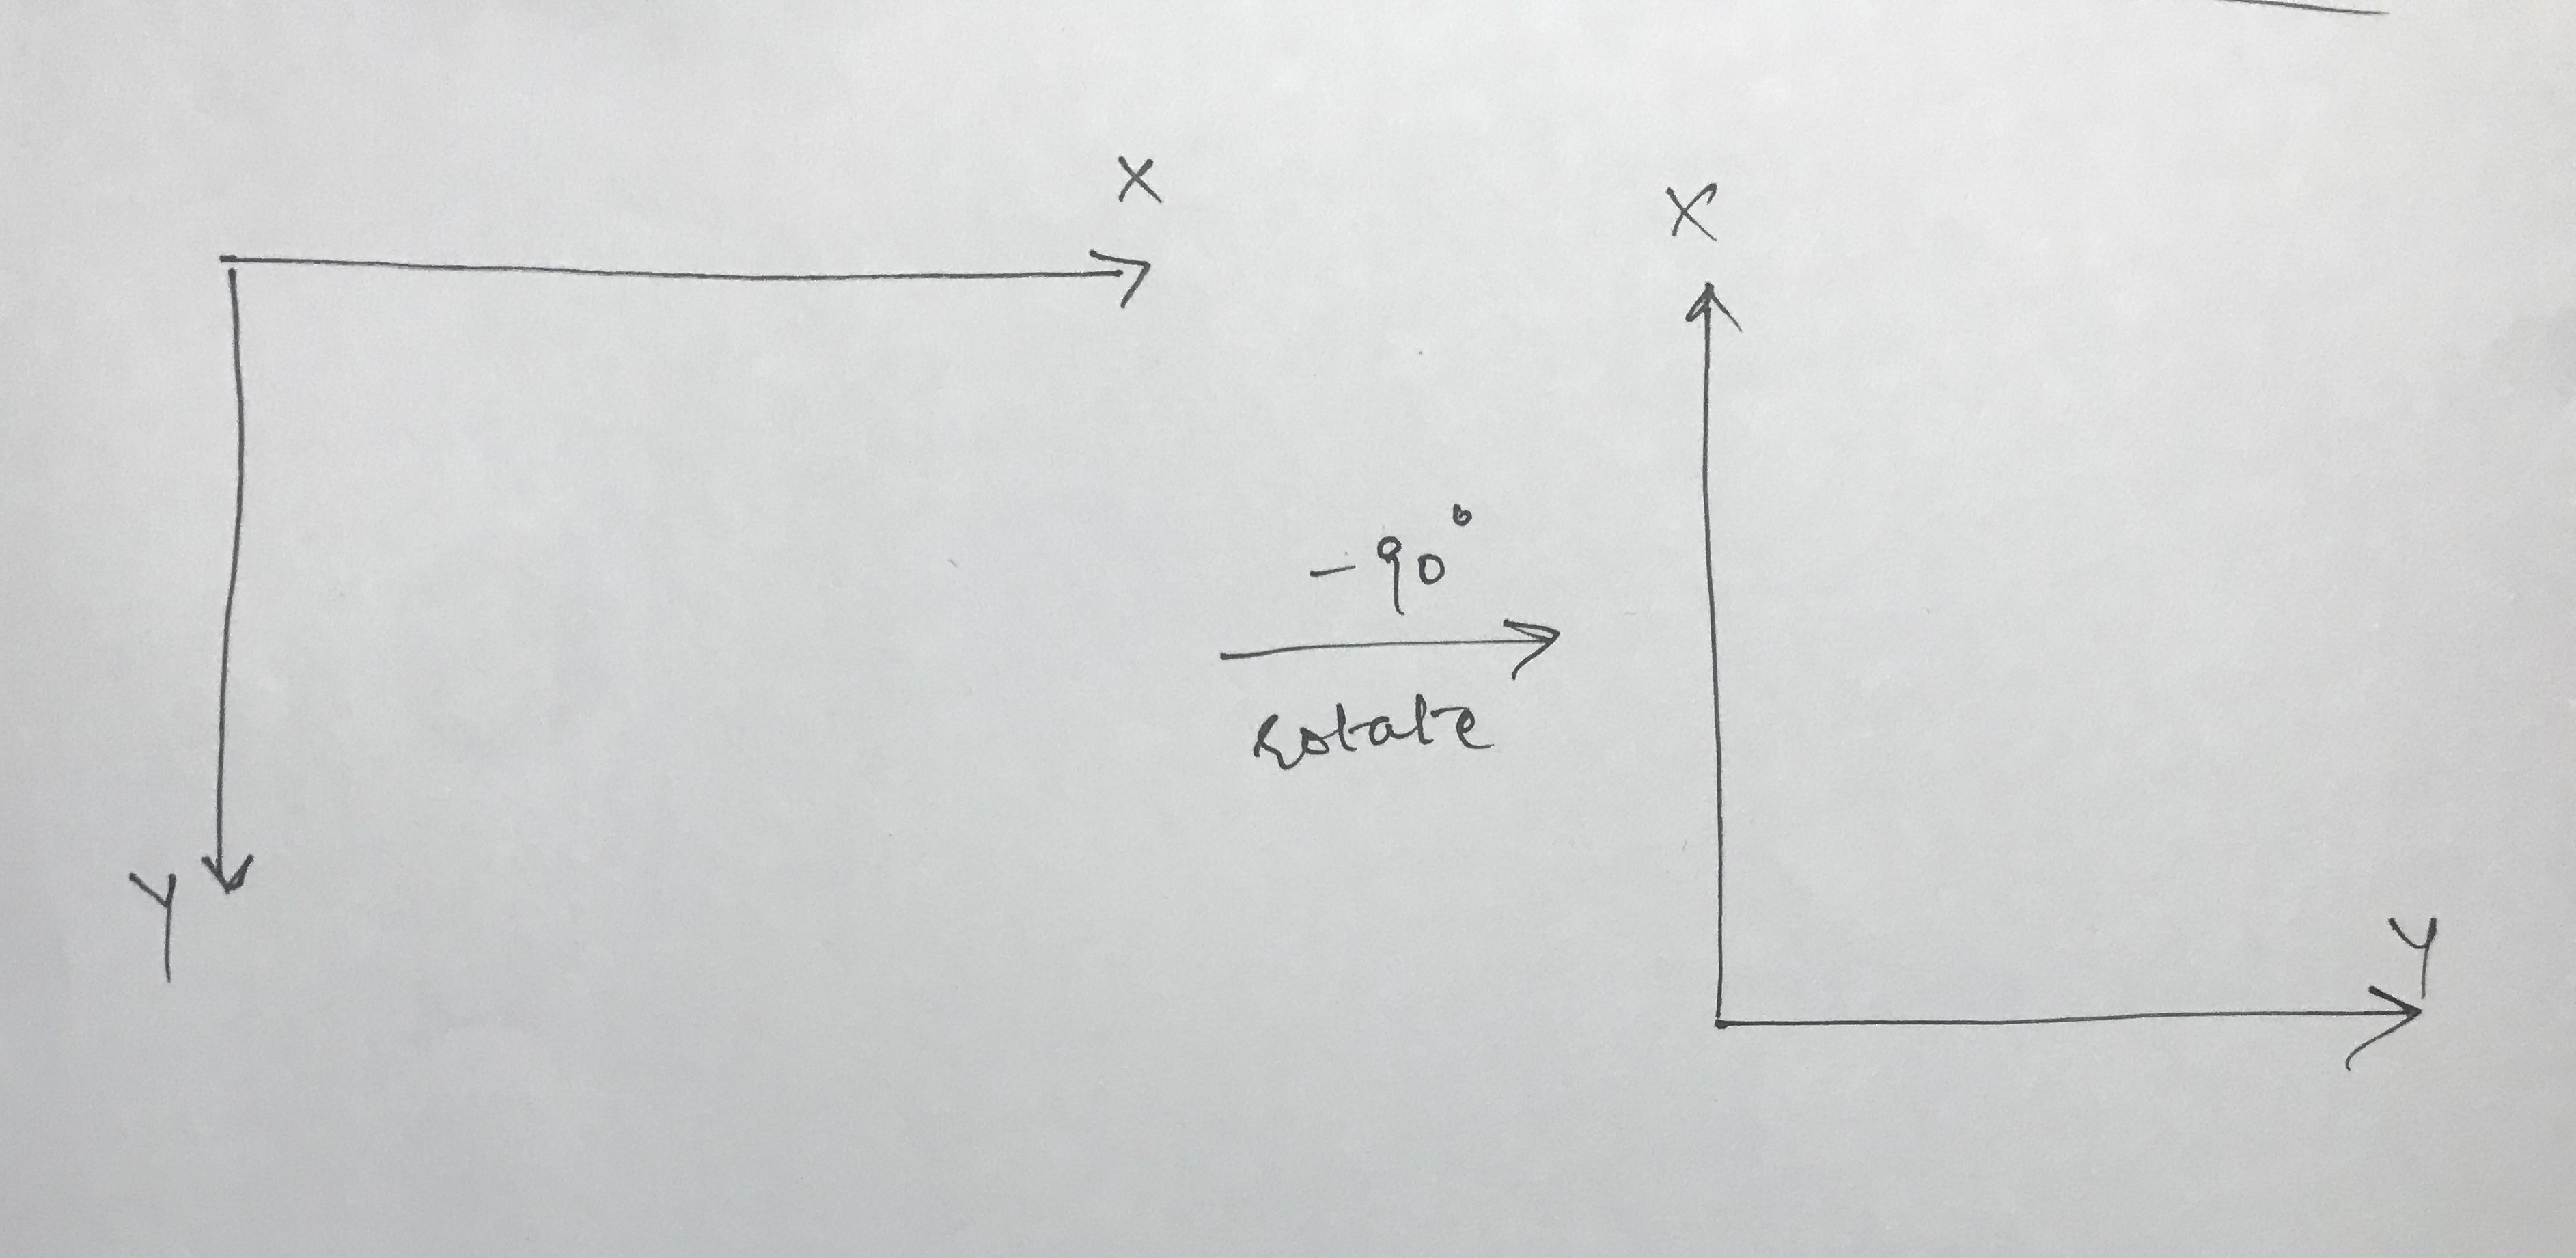 X
Y
-90°
rotate
X
Y